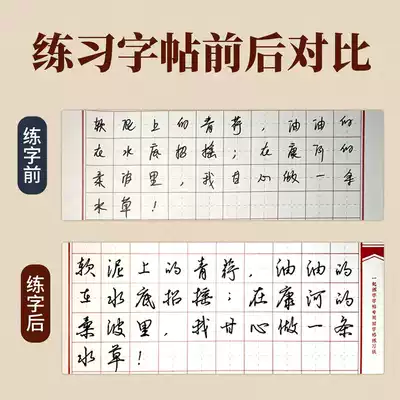 练习字帖前后对比
练字前
软泥上的青荇，油油的
在水底招摇；在康河的
柔波里，我甘心做一条
水草！
练字后
软泥上的青荇，油油的
在水底招摇；在康河的
柔波里，我甘心做一条
水草！